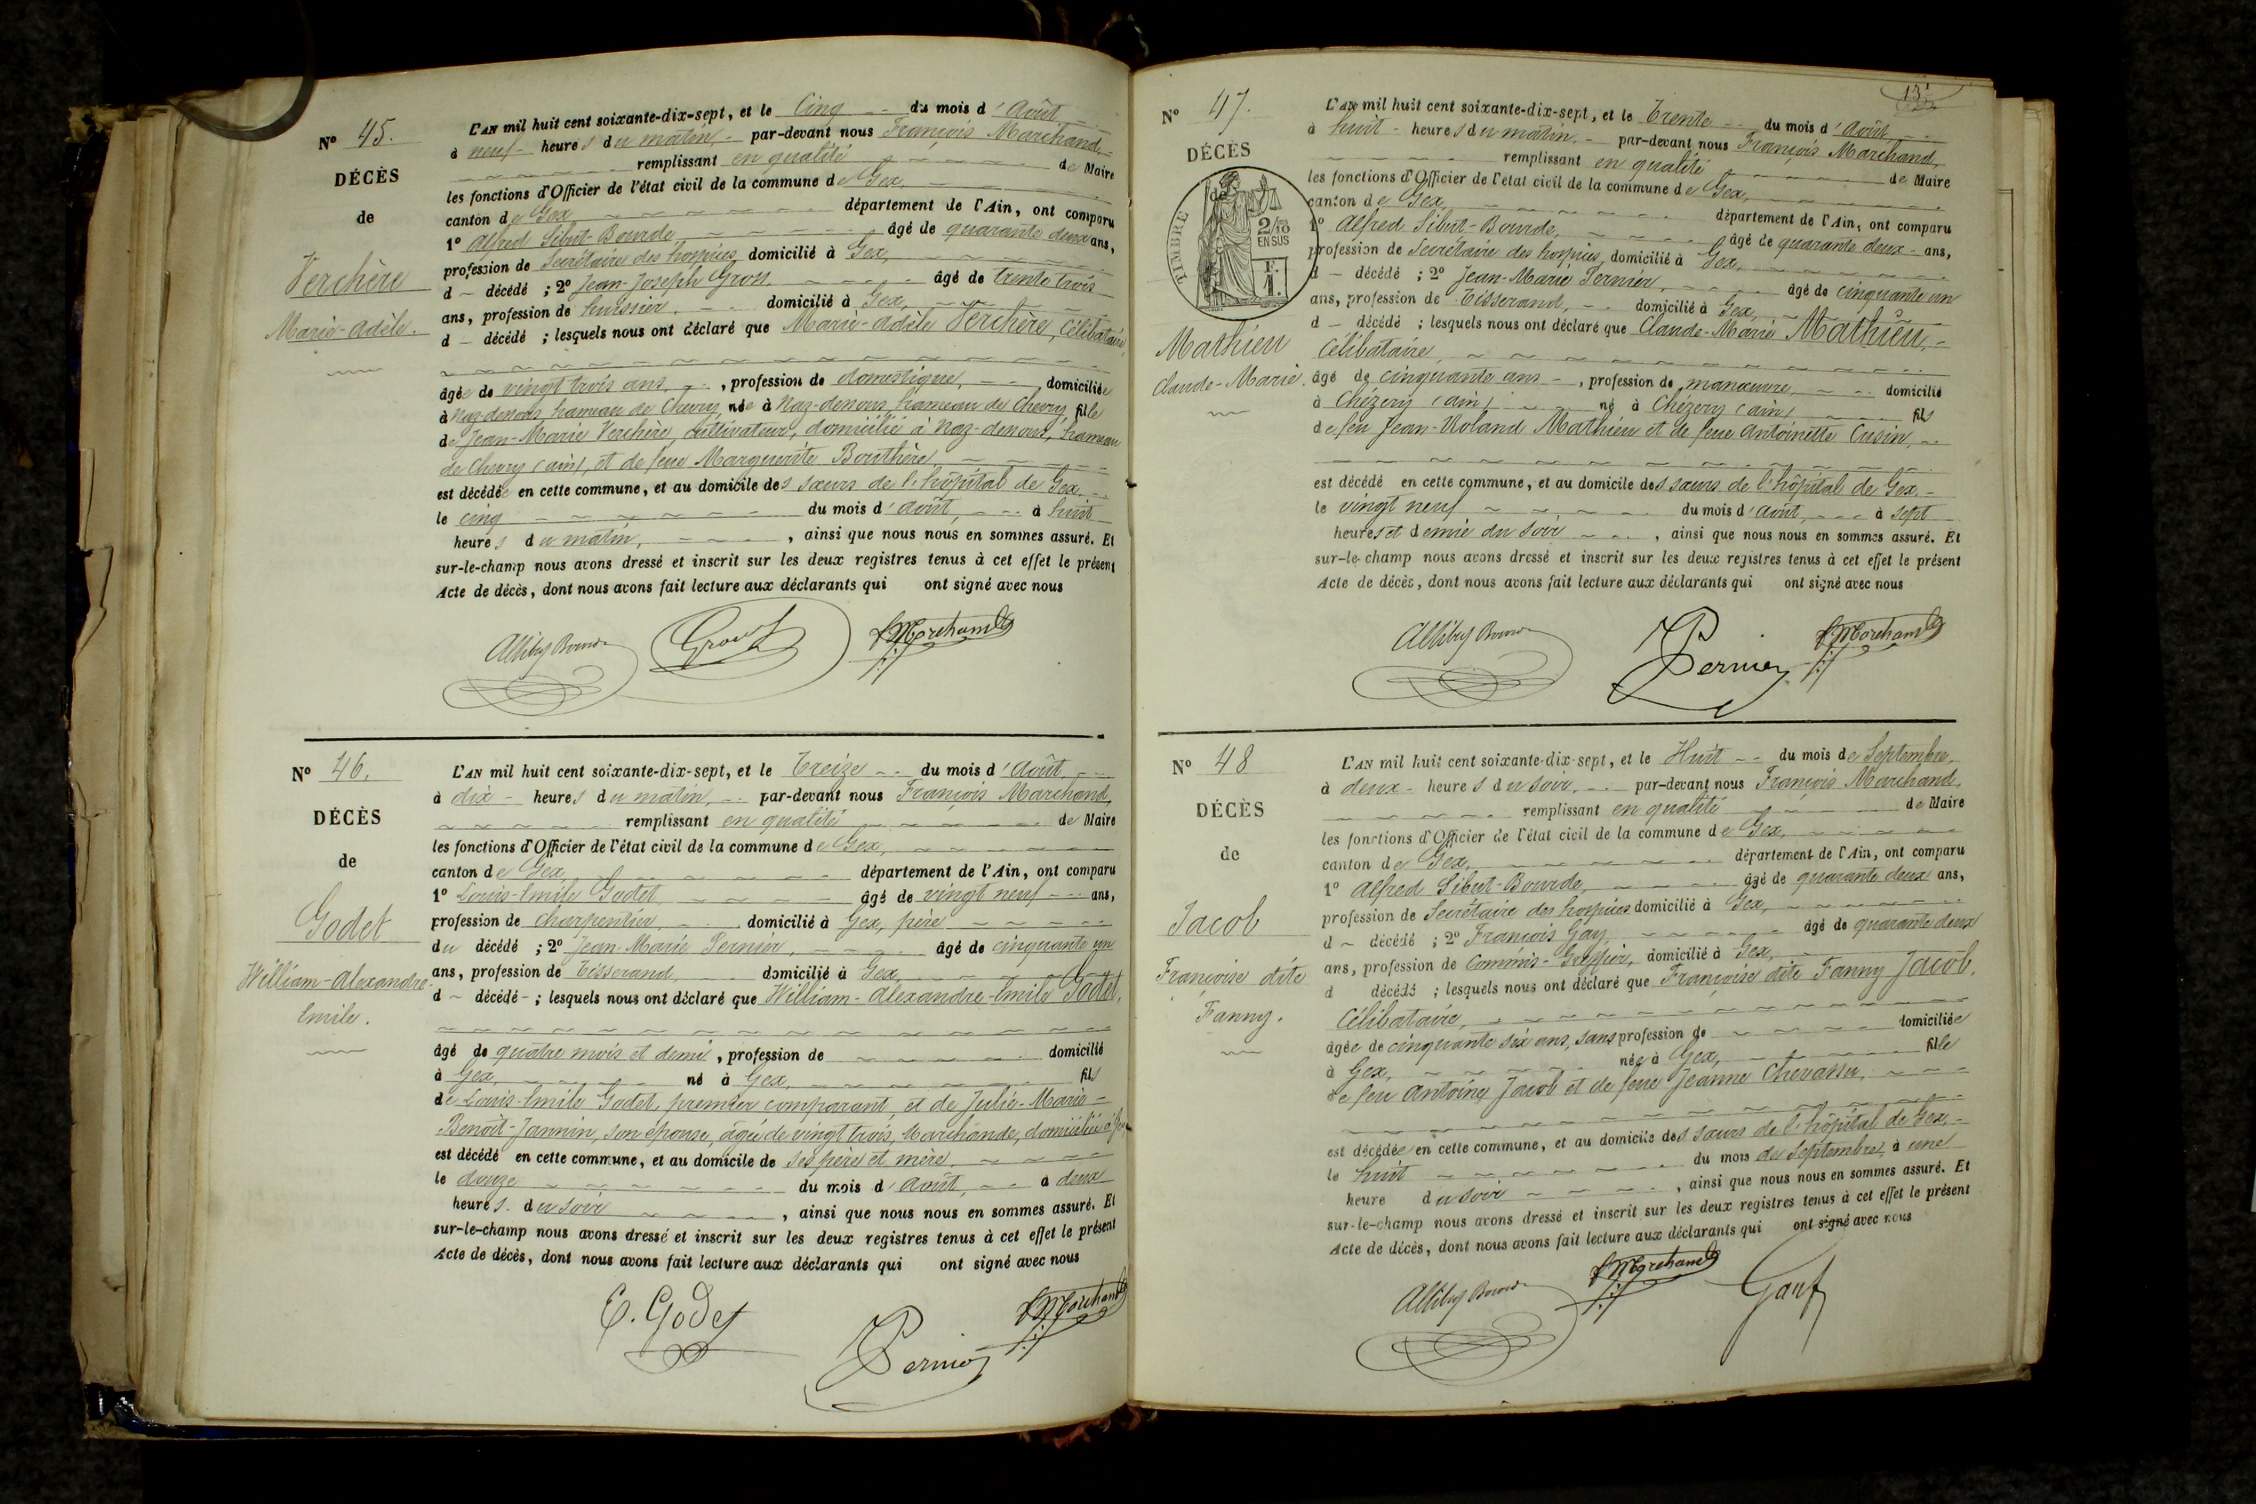 Nº 45.
DÉCÈS
de
Verchère
Marie-Adèle.
L'AN mil huit cent soixante-dix-sept, et le Cinq du mois d'Août
à neuf heures du matin, par-devant nous François Marchand,
remplissant en qualité de Maire
les fonctions d'Officier de l'état civil de la commune de Gex,
canton de Gex département de l'Ain, ont comparu
1º Alfred Sibut-Bourde âgé de quarante deux ans,
profession de Secrétaire des hospices domicilié à Gex,
d décédé ; 2º Jean-Joseph Gros, âgé de trente trois
ans, profession de huissier, domicilié à Gex,
d décédé ; lesquels nous ont déclaré que Marie-Adèle Verchère, Célibataire,
âgée de vingt trois ans, profession de domestique, domiciliée
à Naz-dessous hameau de Chevry, née à Naz-dessous, hameau de Chevry, fille
de Jean-Marie Verchère, cultivateur, domicilié à Naz-dessous, hameau
de Chevry (ain), et de feue Marguerite Bouthère
est décédée en cette commune, et au domicile des sœurs de l'hôpital de Gex,
le cinq du mois d'Août, à huit
heures du matin, , ainsi que nous nous en sommes assuré. Et
sur-le-champ nous avons dressé et inscrit sur les deux registres tenus à cet effet le présent
Acte de décès, dont nous avons fait lecture aux déclarants qui ont signé avec nous
F. Marchand
Nº 46.
DÉCÈS
de
Godet
William-Alexandre-
Emile.
L'AN mil huit cent soixante-dix-sept, et le Treize du mois d'Août
à dix heures du matin, par-devant nous François Marchand,
remplissant en qualité de Maire
les fonctions d'Officier de l'état civil de la commune de Gex,
canton de Gex, département de l'Ain, ont comparu
1º Louis-Emile Godet âgé de vingt neuf ans,
profession de charpentier domicilié à Gex, père
du décédé ; 2º Jean-Marie Pernier, âgé de cinquante un
ans, profession de Tisserand domicilié à Gex,
d décédé ; lesquels nous ont déclaré que William-Alexandre-Emile Godet,
âgé de quatre mois et demi, profession de domicilié
à Gex, né à Gex, fils
de Louis-Emile Godet, premier comparant, et de Julie-Marie-
Benoît-Jannin, son épouse, âgée de vingt trois, Marchande, domiciliée à Gex,
est décédé en cette commune, et au domicile de ses père et mère,
le douze du mois d'Août, à deux
heures du soir , ainsi que nous nous en sommes assuré. Et
sur-le-champ nous avons dressé et inscrit sur les deux registres tenus à cet effet le présent
Acte de décès, dont nous avons fait lecture aux déclarants qui ont signé avec nous
E. Godet
Pernier
F. Marchand
Nº 47.
DÉCÈS
de
TIMBRE
2/10
EN SUS
F.
1.
Mathieu
Claude-Marie.
L'AN mil huit cent soixante-dix-sept, et le Trente du mois d'Août,
à huit heures du matin, par-devant nous François Marchand,
remplissant en qualité de Maire
les fonctions d'Officier de l'état civil de la commune de Gex,
canton de Gex, département de l'Ain, ont comparu
1º Alfred Sibut-Bourde, âgé de quarante deux ans,
profession de Secrétaire des hospices, domicilié à Gex,
d décédé ; 2º Jean-Marie Pernier, âgé de cinquante un
ans, profession de Tisserand, domicilié à Gex,
d décédé ; lesquels nous ont déclaré que Claude-Marie Mathieu,
Célibataire,
âgé de cinquante ans, profession de manœuvre, domicilié
à Chézery (ain) né à Chézery (ain) fils
de feu Jean-Roland Mathieu et de feue Antoinette Cusin,
est décédé en cette commune, et au domicile des sœurs de l'hôpital de Gex,
le vingt neuf du mois d'Août, à sept
heures et demie du soir , ainsi que nous nous en sommes assuré. Et
sur-le-champ nous avons dressé et inscrit sur les deux registres tenus à cet effet le présent
Acte de décès, dont nous avons fait lecture aux déclarants qui ont signé avec nous
Pernier
F. Marchand
Nº 48
DÉCÈS
de
Jacob
Françoise dite
Fanny.
L'AN mil huit cent soixante-dix-sept, et le Huit du mois de Septembre,
à deux heures du soir, par-devant nous François Marchand,
remplissant en qualité de Maire
les fonctions d'Officier de l'état civil de la commune de Gex,
canton de Gex, département de l'Ain, ont comparu
1º Alfred Sibut-Bourde, âgé de quarante deux ans,
profession de Secrétaire des hospices domicilié à Gex,
d décédé ; 2º François Gay, âgé de quarante deux
ans, profession de Commis-Greffier, domicilié à Gex,
d décédé ; lesquels nous ont déclaré que Françoise dite Fanny Jacob,
Célibataire,
âgée de cinquante six ans, sans profession de domiciliée
à Gex, née à Gex, fille
de feu Antoine Jacob et de feue Jeanne Chevassu,
est décédée en cette commune, et au domicile des sœurs de l'hôpital de Gex,
le huit du mois de Septembre, à une
heure du soir , ainsi que nous nous en sommes assuré. Et
sur-le-champ nous avons dressé et inscrit sur les deux registres tenus à cet effet le présent
Acte de décès, dont nous avons fait lecture aux déclarants qui ont signé avec nous
F. Marchand
Gay